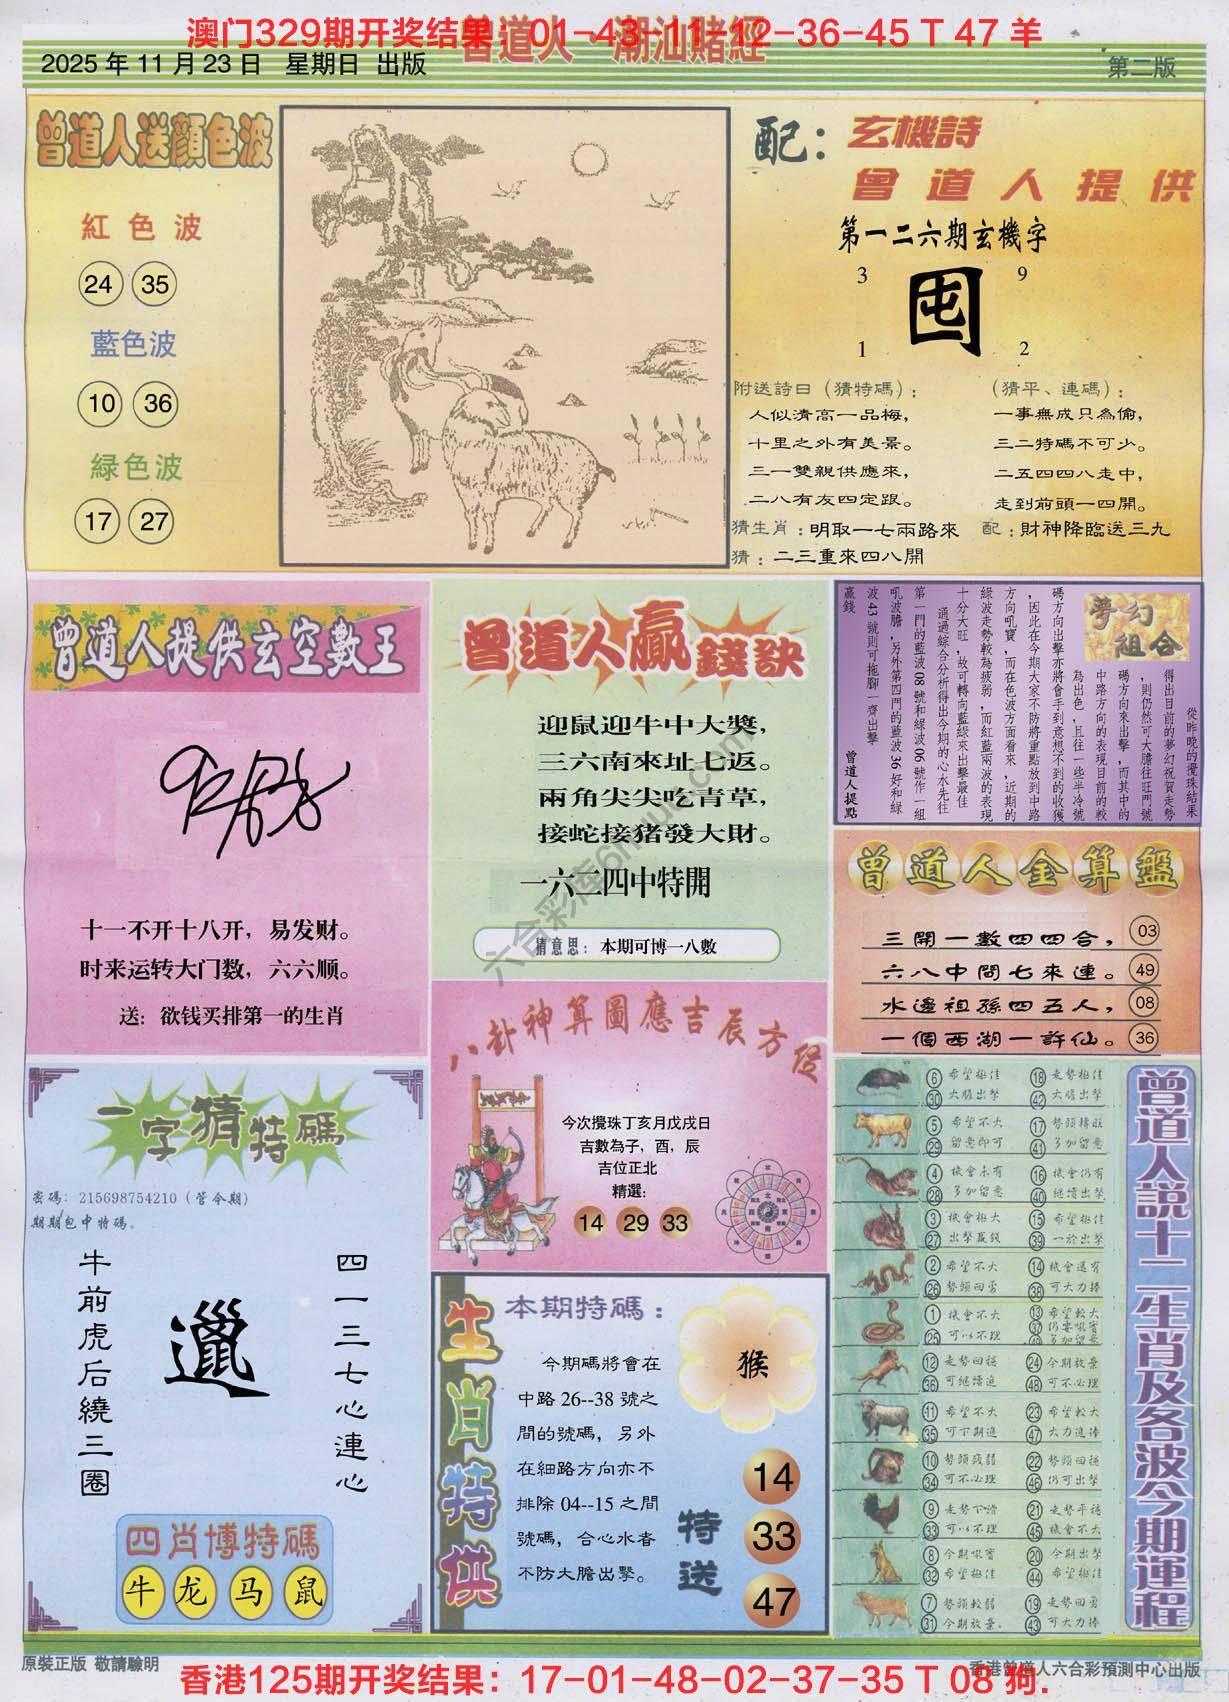 澳门329期开奖结果：01-43-11-12-36-45 T 47 羊
曾道人·潮汕賭經
2025 年 11 月 23 日 星期日 出版
第二版
曾道人送顏色波
紅色波
24 35
藍色波
10 36
緑色波
17 27
配：玄機詩
曾道人提供
第一二六期玄機字
3 9
囤
1 2
附送詩曰（猜特碼）：
人似清高一品梅，
十里之外有美景。
三一雙親供應來，
二八有友四定跟。
（猜平、連碼）：
一事無成只為偷，
三二特碼不可少。
二五四四八走中，
走到前頭一四開。
猜生肖：明取一七兩路來 配：財神降臨送三九
猜：二三重來四八開
曾道人提供玄空數王
十一不开十八开，易发财。
时来运转大门数，六六顺。
送：欲钱买排第一的生肖
曾道人贏錢訣
迎鼠迎牛中大獎，
三六南來址七返。
兩角尖尖吃青草，
接蛇接猪發大財。
一六二四中特開
猜意思：本期可博一八數
夢幻組合
從昨晚的攪珠結果
得出目前的夢幻祝賀走勢
，則仍然可大膽往旺門號
碼方向來出擊，而其中的
中路方向的表現目前的較
為出色，且往一些半冷號
碼方向出擊亦將會手到意想不到的收獲
，因此在今期大家不防將重點放到中路
方向吼寶，而在色波方面看來，近期的
綠波走勢較為疲弱，而紅藍兩波的表現
十分大旺，故可轉向藍綠來出擊最佳
通過綜合分析得出今期的心水先往
第一門的藍波08號和綠波06號作一組
吼波膽，另外第四門的藍波36好和綠
波43號則可拖腳一齊出擊
贏錢
曾道人提點
曾道人金算盤
三開一數四四合， 03
六八中間七來連。 49
水邊祖孫四五人， 08
一個西湖一許仙。 36
八卦神算圖應吉辰方位
今次攪珠丁亥月戊戌日
吉數為子，酉，辰
吉位正北
精選：
14 29 33
一字猜特碼
密碼：215698754210（管令期）
期期包中特碼。
牛前虎后繞三圈
邋
四一三七心連心
四肖博特碼
牛 龙 马 鼠
生肖特供
本期特碼：
今期碼將會在
中路 26--38 號之
間的號碼，另外
在細路方向亦不
排除 04--15 之間
號碼，合心水者
不防大膽出擊。
猴
特送
14
33
47
曾道人説十二生肖及各波今期運程
6 希望極佳 18 走勢極佳
30 大膽出擊 42 大膽出擊
5 希望不大 17 勢頭積旺
29 留意即可 41 多加留意
4 機會未有 16 機會仍有
28 多加留意 40 繼續出擊
3 機會極大 15 希望極佳
27 出擊贏錢 39 一於出擊
2 希望不大 14 機會還有
26 勢頭回勇 38 可大力捧
1 機會不大 13 希望較大
25 可以不理
12 走勢回穩 24 今期放棄
36 可繼續追 48 可不必理
11 希望不大 23 希望較大
35 可下期追 47 大力追捧
10 勢頭疲弱 22 勢頭回穩
34 可不必理 46 仍可出擊
9 走勢下滑 21 走勢平穩
33 可以不理 45 機會不大
8 今期吼實 20 今期出擊
32 希望極佳 44 希望極佳
7 勢頭較弱 19 走勢回勇
31 今期放棄。 43 可大力捧
六合彩库6huu.com
原裝正版 敬請驗明
香港曾道人六合彩預測中心出版
香港125期开奖结果：17-01-48-02-37-35 T 08 狗.